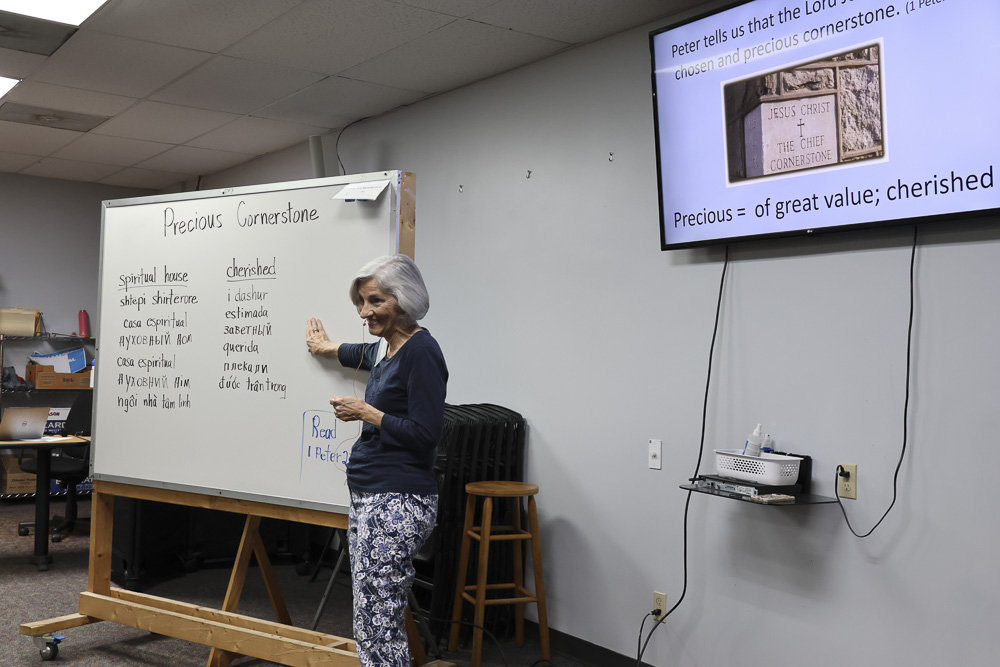 Precious Cornerstone
spiritual house
shtëpi shirterore
casa espiritual
ДУХОВНЫЙ ДОМ
casa espiritual
ДУХОВНИЙ ДІМ
ngôi nhà tâm linh
cherished
i dashur
estimada
ЗАВЕТНЫЙ
querida
плекали
được trân trọng
Read
1 Peter 2
Peter tells us that the Lord
chosen and precious cornerstone. (1 Peter
JESUS CHRIST
THE CHIEF
CORNERSTONE
Precious = of great value; cherished